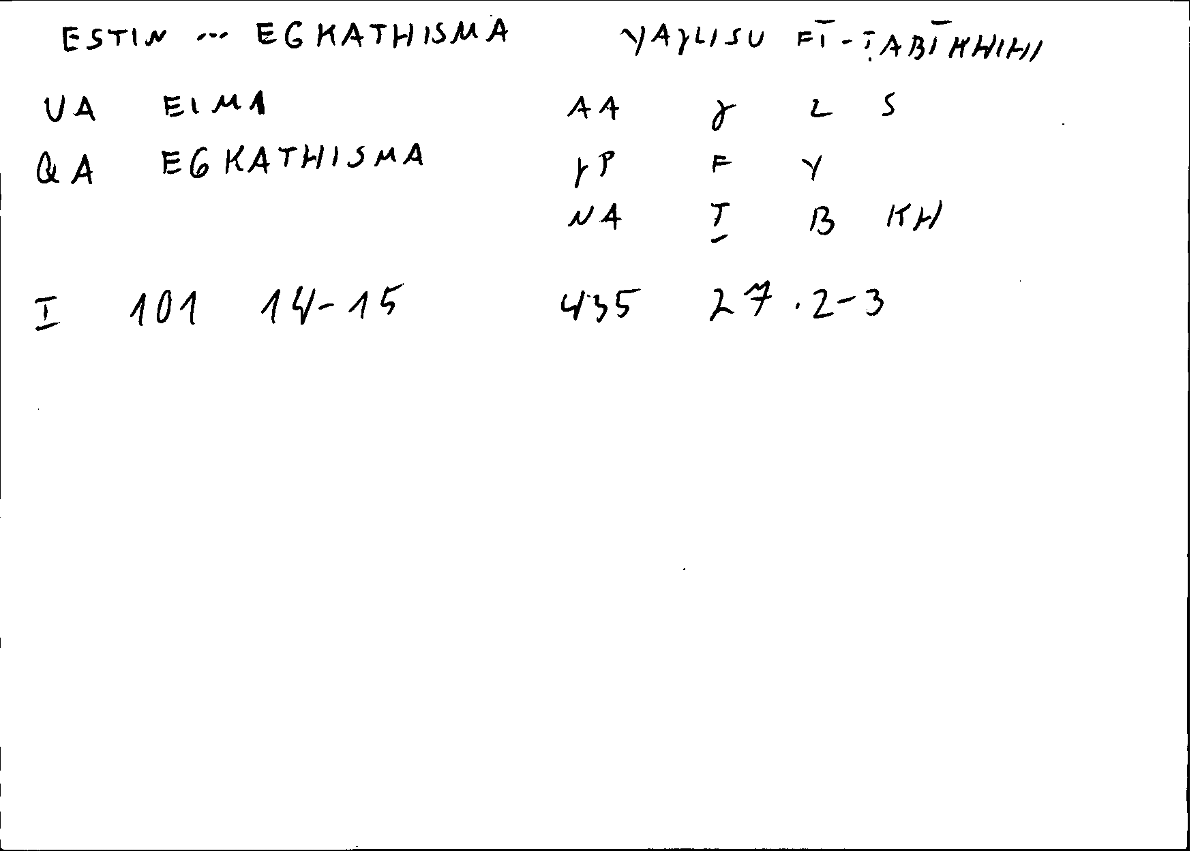 ESTIN ... EGKATHISMA YAɣLISU FĪ-ṬABĪKHIHI
UA EIMA AA ɣ L S
QA EGKATHISMA ɣP F Y
NA Ṭ B KH
I 101 14-15 435 27.2-3